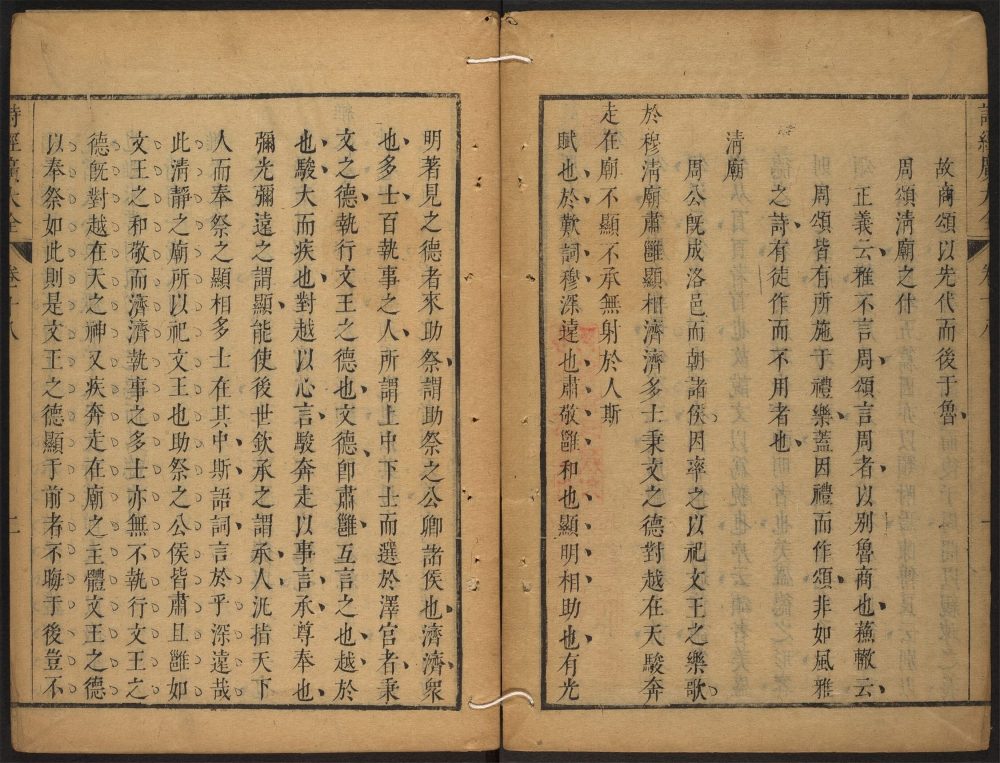 故商頌以先代而後于魯
周頌清廟之什
正義云雅不言周頌言周者以別魯商也蘓轍云
周頌皆有所施于禮樂蓋因禮而作頌非如風雅
之詩有徒作而不用者也
清廟
周公旣成洛邑而朝諸侯因率之以祀文王之樂歌
於穆清廟肅雝顯相濟濟多士秉文之德對越在天駿奔
走在廟不顯不承無射於人斯
賦也於歎詞穆深遠也肅敬雝和也顯明相助也有光
明著見之德者來助祭謂助祭之公卿諸侯也濟濟衆
也多士百執事之人所謂上中下士而選於澤宮者秉
文之德執行文王之德也文德卽肅雝互言之也越於
也駿大而疾也對越以心言駿奔走以事言承尊奉也
彌光彌遠之謂顯能使後世欽承之謂承人汎指天下
人而奉祭之顯相多士在其中斯語詞言於乎深遠哉
此清靜之廟所以祀文王也助祭之公侯皆肅且雝如
文王之和敬而濟濟執事之多士亦無不執行文王之
德旣對越在天之神又疾奔走在廟之主體文王之德
以奉祭如此則是文王之德顯于前者不晦于後豈不
詩經廣大全
卷十八
二